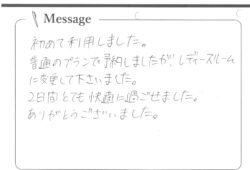 Message
初めて利用しました。
普通のプランで予約しましたが、レディースルーム
に変更して下さいました。
2日間とても快適に過ごせました。
ありがとうございました。